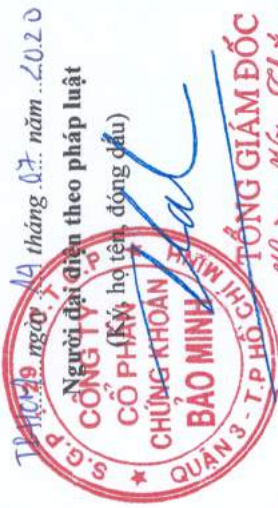 TP.HCM, ngày 14 tháng 07 năm 2020
Người đại diện theo pháp luật
(Ký, họ tên, đóng dấu)
CÔNG TY
CỔ PHẦN
CHỨNG KHOÁN
BẢO MINH
QUẬN 3 - T.P HỒ CHÍ MINH
TỔNG GIÁM ĐỐC